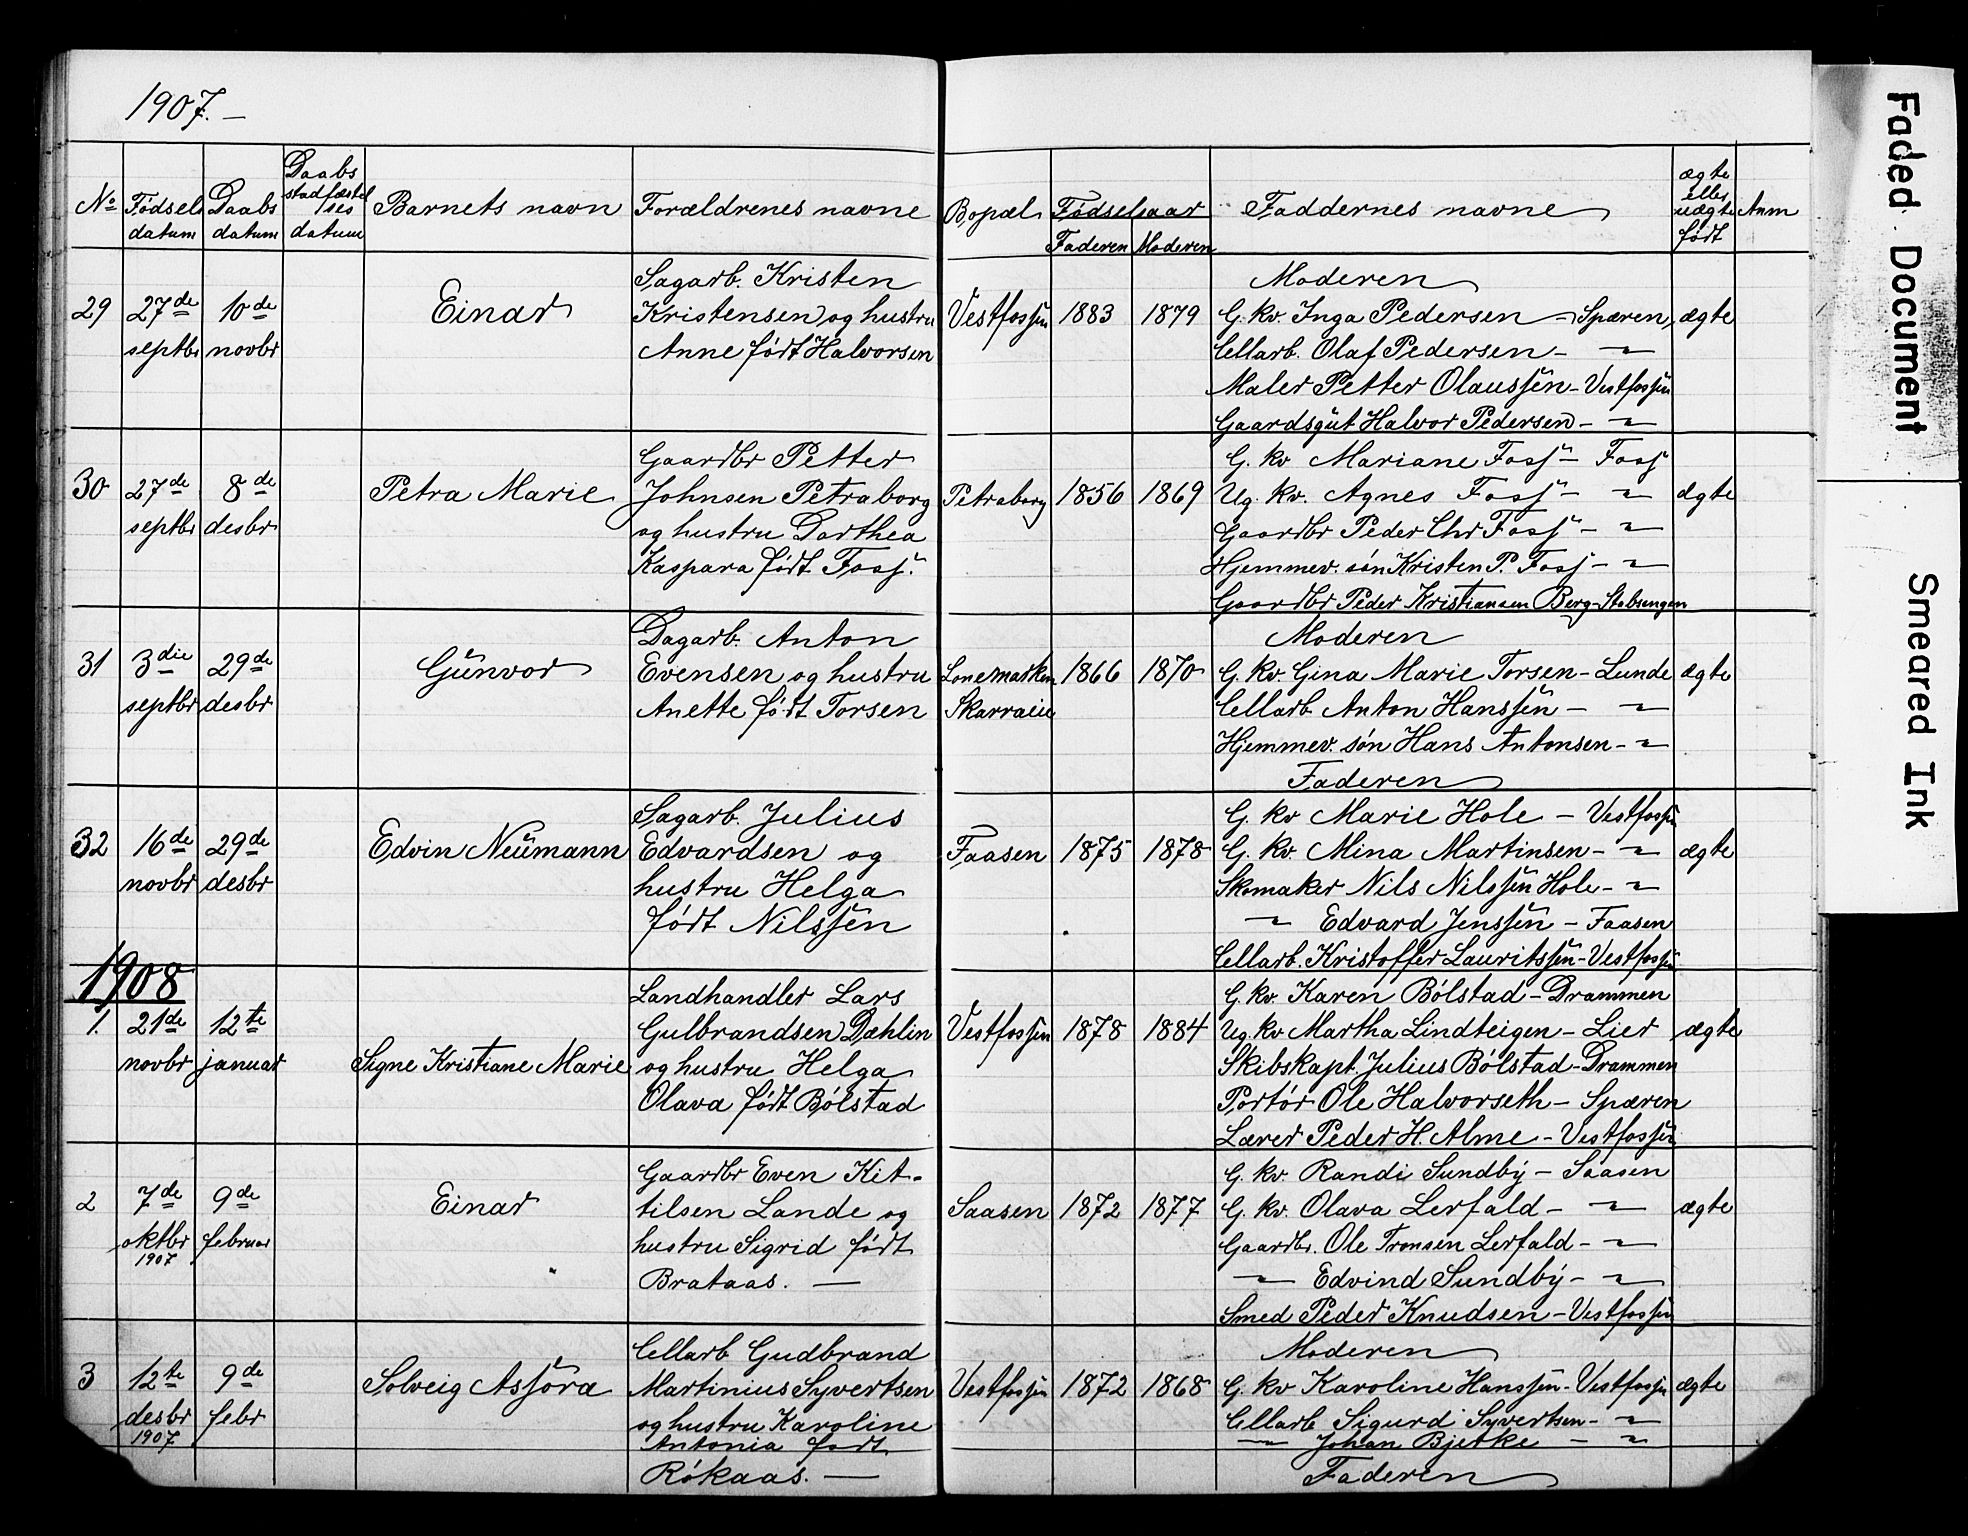 1907.—
No
Fødsels datum
Daabs datum
Daabs stadfæstel ses datum
Barnets navn
Forældrenes navne
Bopæl
Fødselsaar
Faderen
Moderen
Faddernes navne
ægte eller uægte født
Anm
29
27de septbr
10de novbr
Einar
Sagarb. Kristen
Kristensen og hustru
Anne født Halvorsen
Vestfossen
1883
1879
Moderen
G. kv. Inga Pedersen – Spæren
Cellarb. Olaf Pedersen – "
Maler Petter Olaussen – Vestfossen
Gaardsgut Halvor Pedersen – "
ægte
30
27de septbr
8de desbr
Petra Marie
Gaardbr Petter
Johnsen Petraborg
og hustru Dorthea
Kaspara født Foss.
Petraborg
1856
1869
G. kv Mariane Foss – Foss
Ug. kv. Agnes Foss – "
Gaardbr Peder Chr Foss – "
Hjemmev. søn Kristen P. Foss – "
Gaardbr Peder Kristiansen Berg – Stabsengen
ægte
31
3die septbr
29de desbr
Gunvor
Dagarb. Anton
Evensen og hustru
Anette født Torsen
Lonemarken
Skarraeie
1866
1870
Moderen
G. kv. Gina Marie Torsen – Lunde
Cellarb Anton Hanssen – "
Hjemmev. søn Hans Antonsen – "
Faderen
ægte
32
16de novbr
29de desbr
Edvin Neumann
Sagarb. Julius
Edvardsen og
hustru Helga
født Nilssen
Faasen
1875
1878
G. kv Marie Hole – Vestfossen
G. kv. Mina Martinsen – "
Skomaker Nils Nilssen Hole – "
" Edvard Jenssen – Faasen
Cellarb. Kristoffer Lauritssen – Vestfossen
ægte
1908
1.
21de novbr
12te januar
Signe Kristiane Marie
Landhandler Lars
Gulbrandsen Dæhlin
og hustru Helga
Olava født Bólstad
Vestfossen
1878
1884
G. kv. Karen Bólstad – Drammen
Ug. kv Martha Lindteigen – Lier
Skibskapt. Julius Bólstad – Drammen
Portór Ole Halvorseth – Spæren
Lærer Peder H. Alme – Vestfossen
ægte
2
7de oktbr 1907
9de februar
Einar
Gaardbr Even Kit-
tilsen Lande og
hustru Sigrid født
Brataas. —
Saasen
1872
1877
G. kv. Randi Sundby – Saasen
G. kv. Olava Lerfald – "
Gaardbr. Ole Tronsen Lerfald – "
" Edvind Sundby – "
Smed Peder Knudsen – Vestfossen
ægte
3
12te desbr 1907
9de febr
Solveig Assora
Cellarb Gudbrand
Martinius Syvertsen
og hustru Karoline
Antonia født
Rókaas. —
Vestfossen
1872
1868
Moderen
G. kv Karoline Hanssen – Vestfossen
Cellarb Sigurd Syvertsen – "
" Johan Bjerke – "
Faderen
ægte
Faded Document
Smeared Ink